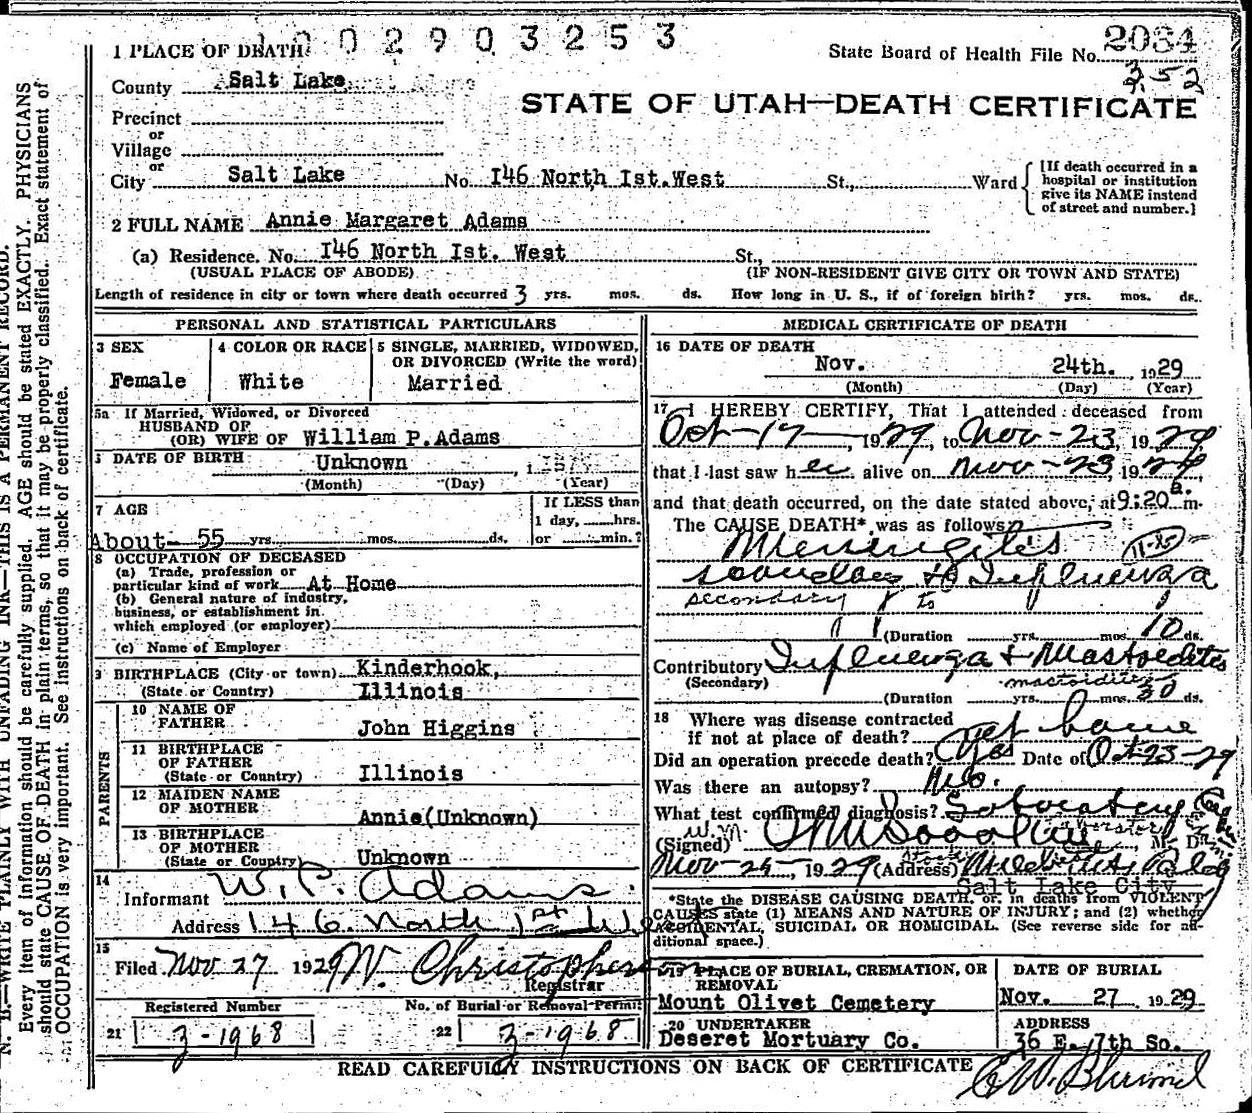 1 PLACE OF DEATH
0 0 2 9 0 3 2 5 3
State Board of Health File No. 2084
352
County Salt Lake
STATE OF UTAH—DEATH CERTIFICATE
Precinct
or
Village
or
City Salt Lake No. I46 North Ist.West St., Ward
[If death occurred in a hospital or institution give its NAME instead of street and number.]
2 FULL NAME Annie Margaret Adams
(a) Residence. No. I46 North Ist. West St.,
(USUAL PLACE OF ABODE) (IF NON-RESIDENT GIVE CITY OR TOWN AND STATE)
Length of residence in city or town where death occurred 3 yrs. mos. ds. How long in U. S., if of foreign birth? yrs. mos. ds.
PERSONAL AND STATISTICAL PARTICULARS
3 SEX
Female
4 COLOR OR RACE
White
5 SINGLE, MARRIED, WIDOWED, OR DIVORCED (Write the word)
Married
5a If Married, Widowed, or Divorced
HUSBAND OF
(OR) WIFE OF William P.Adams
DATE OF BIRTH Unknown
(Month) (Day) (Year)
7 AGE
About 55 yrs. mos. ds.
If LESS than
1 day, hrs.
or min.?
8 OCCUPATION OF DECEASED
(a) Trade, profession or
particular kind of work At Home
(b) General nature of industry,
business, or establishment in
which employed (or employer)
(c) Name of Employer
9 BIRTHPLACE (City or town) Kinderhook,
(State or Country) Illinois
PARENTS
10 NAME OF
FATHER John Higgins
11 BIRTHPLACE
OF FATHER
(State or Country) Illinois
12 MAIDEN NAME
OF MOTHER Annie(Unknown)
13 BIRTHPLACE
OF MOTHER
(State or Country) Unknown
14
Informant W. P. Adams
Address 146 North 1st West
15
Filed Nov 27 1929 W. Christopherson
Registrar
Registered Number
21 3-1968
No. of Burial or Removal Permit
22 3-1968
MEDICAL CERTIFICATE OF DEATH
16 DATE OF DEATH
Nov. 24th. , 1929
(Month) (Day) (Year)
17 I HEREBY CERTIFY, That I attended deceased from
Oct-17-, 1929, to Nov-23, 1929
that I last saw her alive on Nov-23, 1929
and that death occurred, on the date stated above, at 9:20 a. m.
The CAUSE DEATH* was as follows
Meningitis
secondary to Influenza
secondary to
(Duration yrs. mos. 10 ds.
Contributory Influenza & Mastoiditis
(Secondary) mastoiditis
(Duration yrs. mos. 30 ds.
18 Where was disease contracted
if not at place of death? at home
Did an operation precede death? Yes Date of Oct-23-29
Was there an autopsy? No.
What test confirmed diagnosis? Laboratory
(Signed) M. D.
Nov-25-, 1929 (Address)
Salt Lake City
*State the DISEASE CAUSING DEATH, or, in deaths from VIOLENT
CAUSES state (1) MEANS AND NATURE OF INJURY; and (2) whether
ACCIDENTAL, SUICIDAL OR HOMICIDAL. (See reverse side for ad-
ditional space.)
19 PLACE OF BURIAL, CREMATION, OR
REMOVAL
Mount Olivet Cemetery
DATE OF BURIAL
Nov. 27 1929
20 UNDERTAKER
Deseret Mortuary Co.
ADDRESS
36 E. 7th So.
READ CAREFULLY INSTRUCTIONS ON BACK OF CERTIFICATE
N. B.—WRITE PLAINLY WITH UNFADING INK—THIS IS A PERMANENT RECORD.
Every item of information should be carefully supplied. AGE should be stated EXACTLY. PHYSICIANS
should state CAUSE OF DEATH in plain terms, so that it may be properly classified. Exact statement of
OCCUPATION is very important. See instructions on back of certificate.